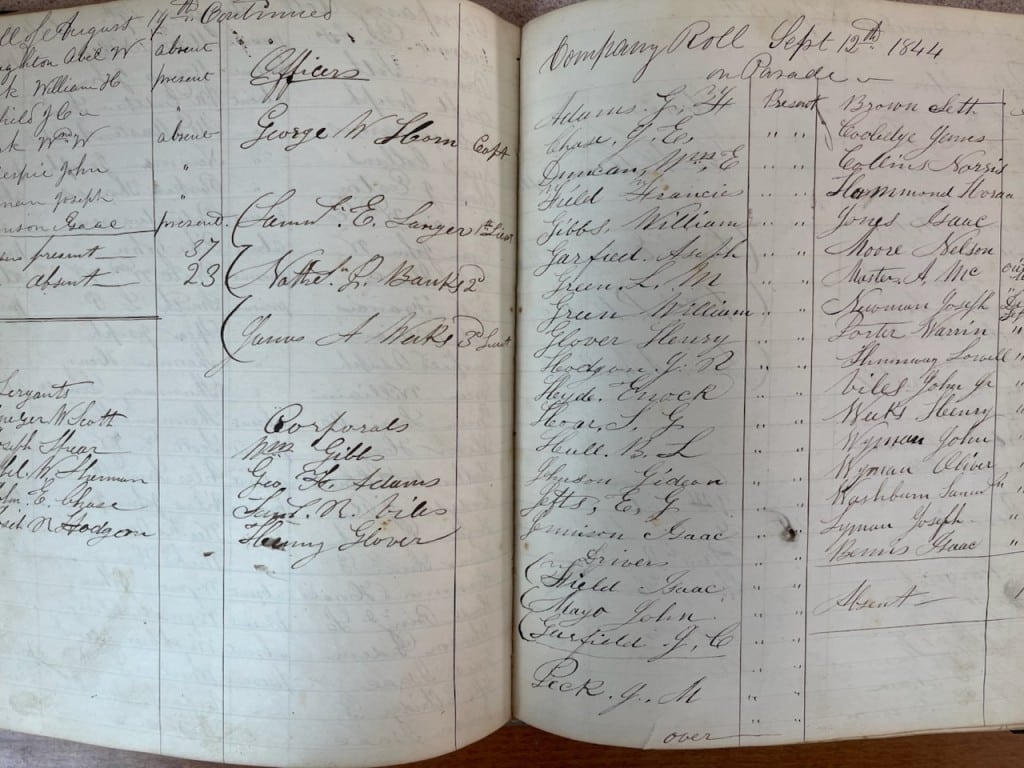 ll of August 19th Continued
ghton Abel W absent
k William H present
hild J C "
rk Wm W absent
espie John "
man Joseph
nson Isaac present
present 37
Absent 23
Sergants
W Scott
oseph Spear
W Sherman
hn E. Chase
R Hodgdon
Officers
George W Horn Capt
Saml. E. Sanger 1st Lieut
Nathl. P. Banks 2d
James A Weeks 3d Lieut
Corporals
Wm Gibbs
Geo. H Adams
Saml. R. Viles
Henny Glover
Company Roll Sept 12th 1844
on Parade
Adams. G. H Present
Chase. J. E. " "
Duncan, Wm E " "
Field Francis " "
Gibbs, William " "
Garfield. Joseph " "
Green. L. M " "
Green William " "
Glover Henry " "
Hodgdon. J. R " "
Heyde. Enock " "
Hoar, S. G " "
Hull. B. L " "
Jhnson Gideon " "
E. G " "
Jnnison Isaac " "
Drivers
Field Isaac " "
Mayo John " "
Garfield J. C " "
Peck. J. M " "
over
Brown Seth
Coolidge James
Collins Norris
Hammond Horac
Jones Isaac
Moore Nelson
Master. A. Mc
Newman Joseph
Porter Warrin
Shumway Lowell "
Viles John Jr "
Weeks Henry "
Wyman John "
Wyman Oliver "
Washburn Samul "
Lyman Joseph "
Bemis Isaac "
Absent